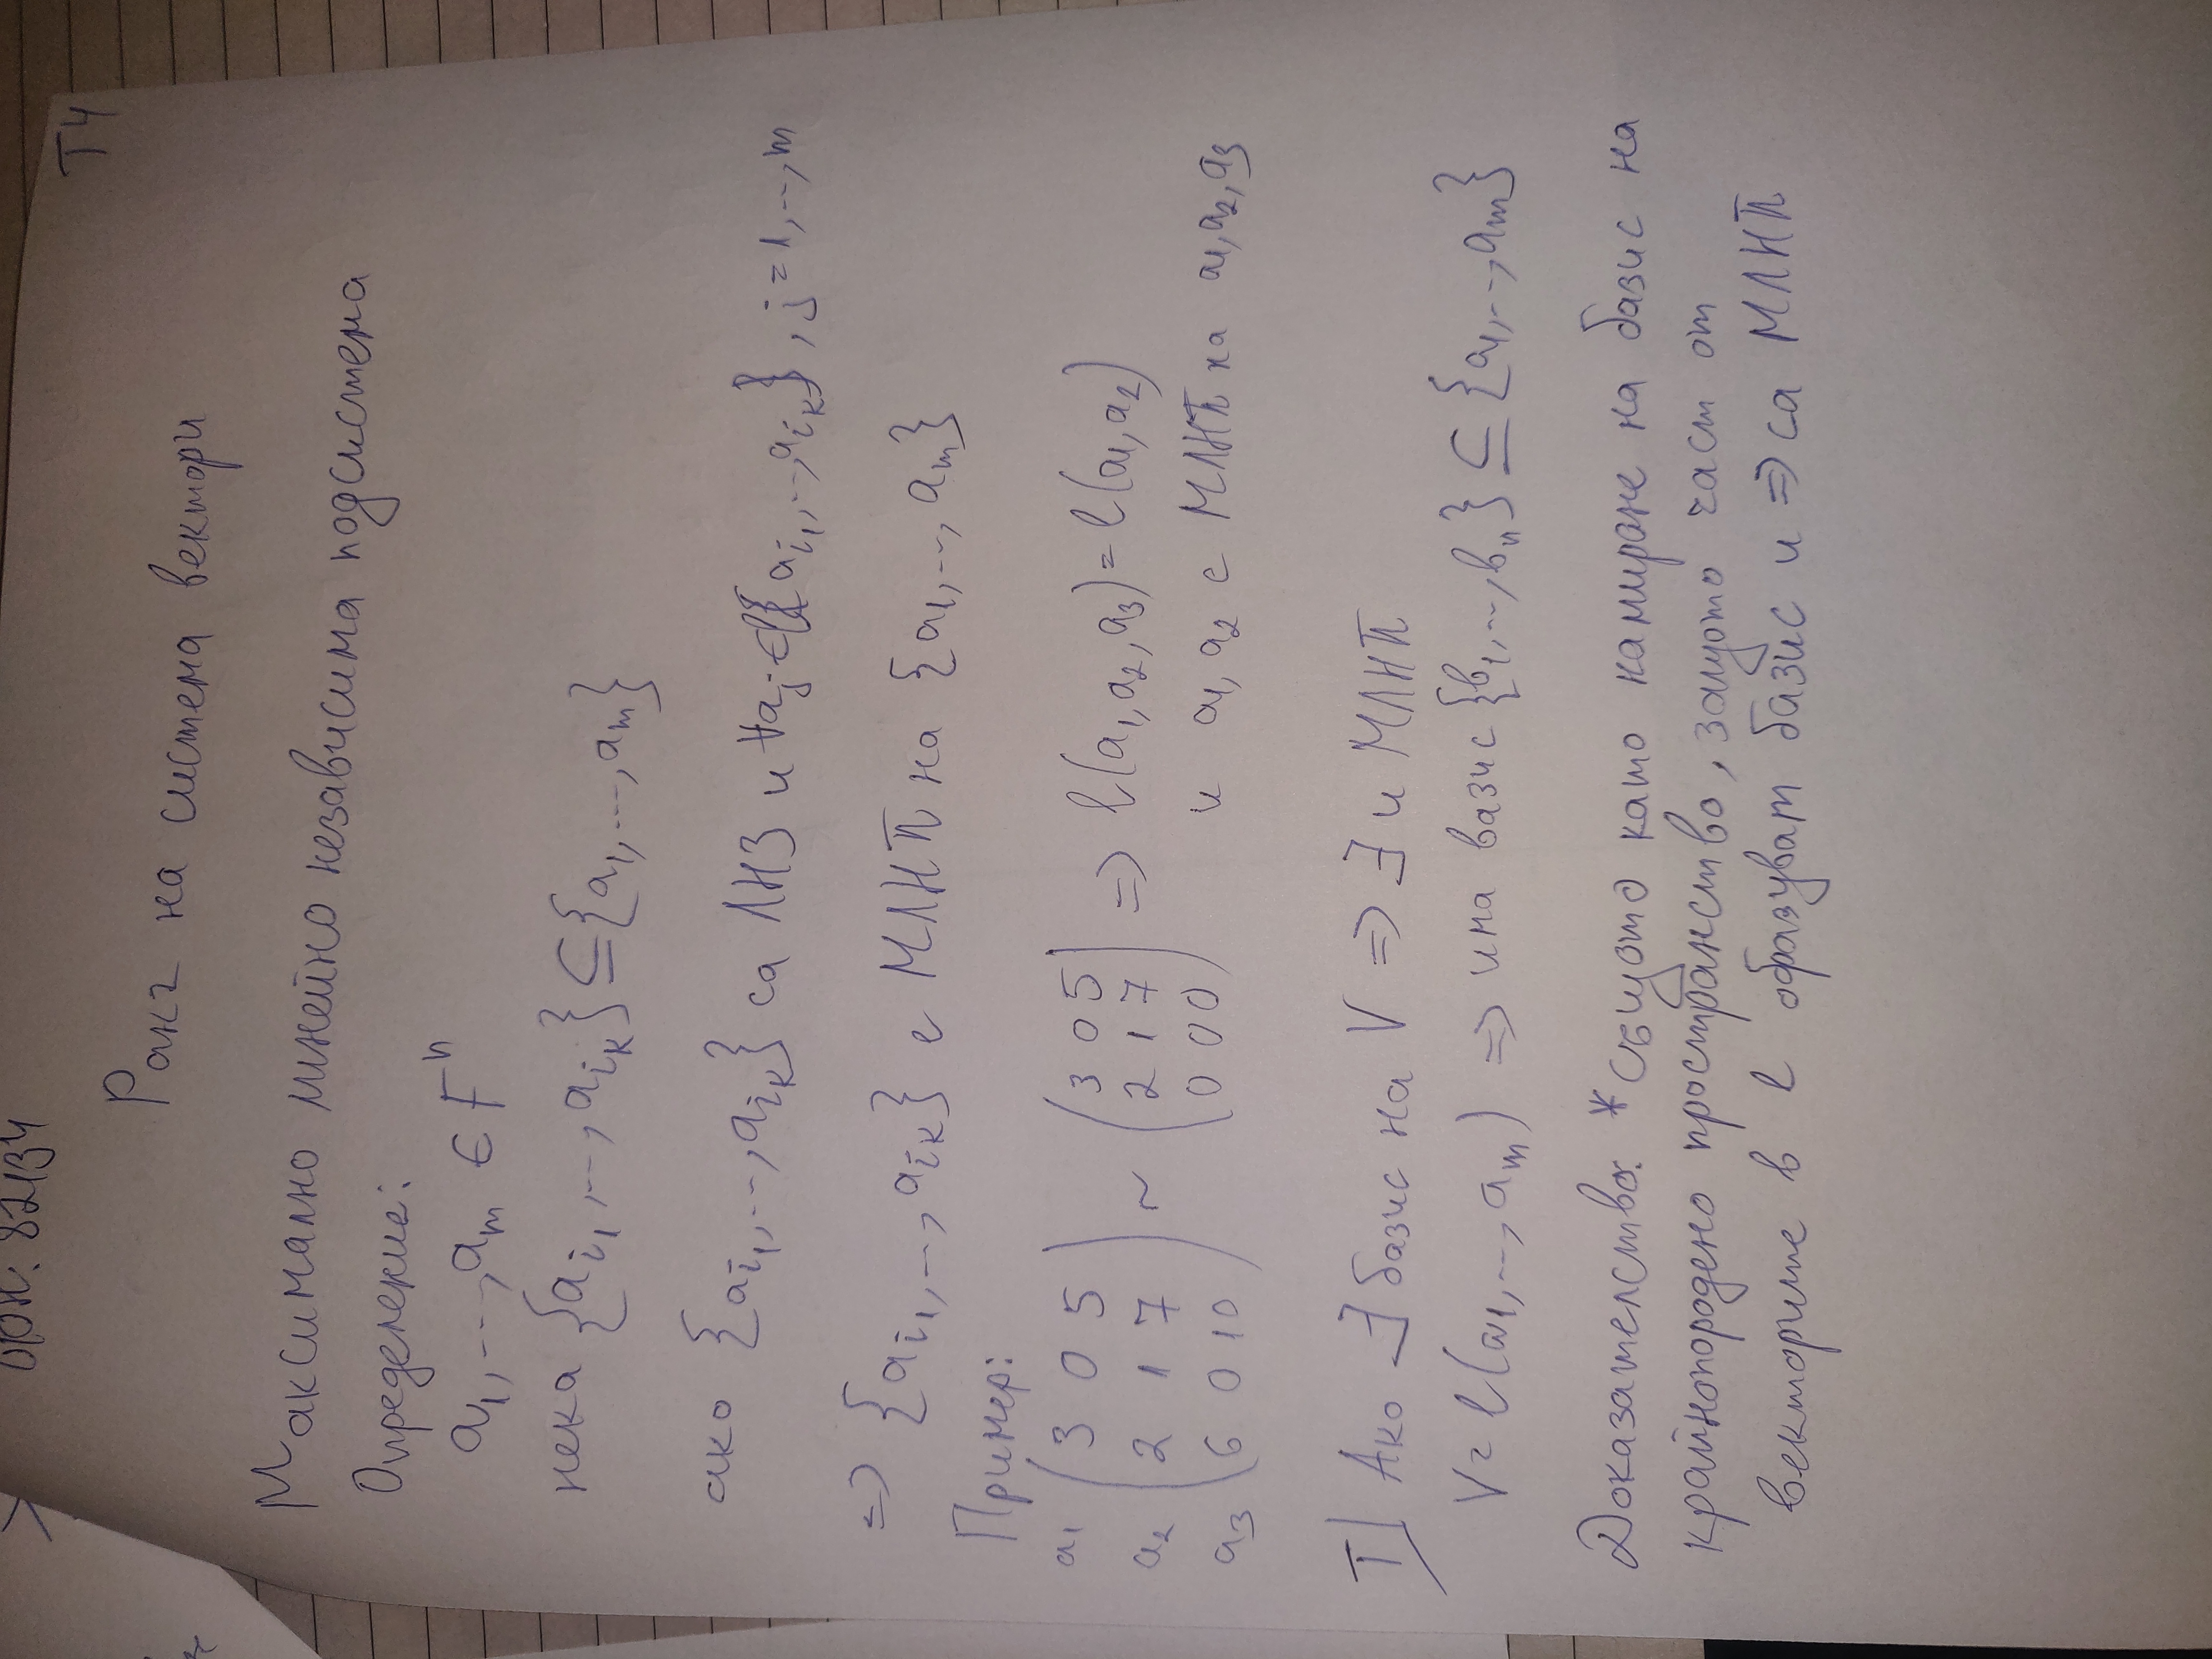 ФН: 82134
T4
Ранг на система вектори
Максимално линейно независима подсистема
Определение:
a₁,...,aₘ ∈ Fⁿ
нека {a_{i₁},...,a_{iₖ}} ⊆ {a₁,...,aₘ}
ако {a_{i₁},...,a_{iₖ}} са ЛНЗ и ∀aⱼ ∈ ℓ(a_{i₁},...,a_{iₖ}), j=1,...,m
=> {a_{i₁},...,a_{iₖ}} е МЛНП на {a₁,...,aₘ}
Пример:
a₁ (3 0 5) (3 0 5)
a₂ (2 1 7) ~ (2 1 7) => ℓ(a₁,a₂,a₃)=ℓ(a₁,a₂)
a₃ (6 0 10) (0 0 0) и a₁,a₂ е МЛНП на a₁,a₂,a₃
T| Ако ∃ базис на V => ∃ и МЛНП
V=ℓ(a₁,...,aₘ) => има вазис {b₁,...,bₙ} ⊆ {a₁,...,aₘ}
Доказателство: *същото като намиране на базис на
крайнопородено пространство, защото част от
векторите в ℓ образуват базис и => са МЛНП